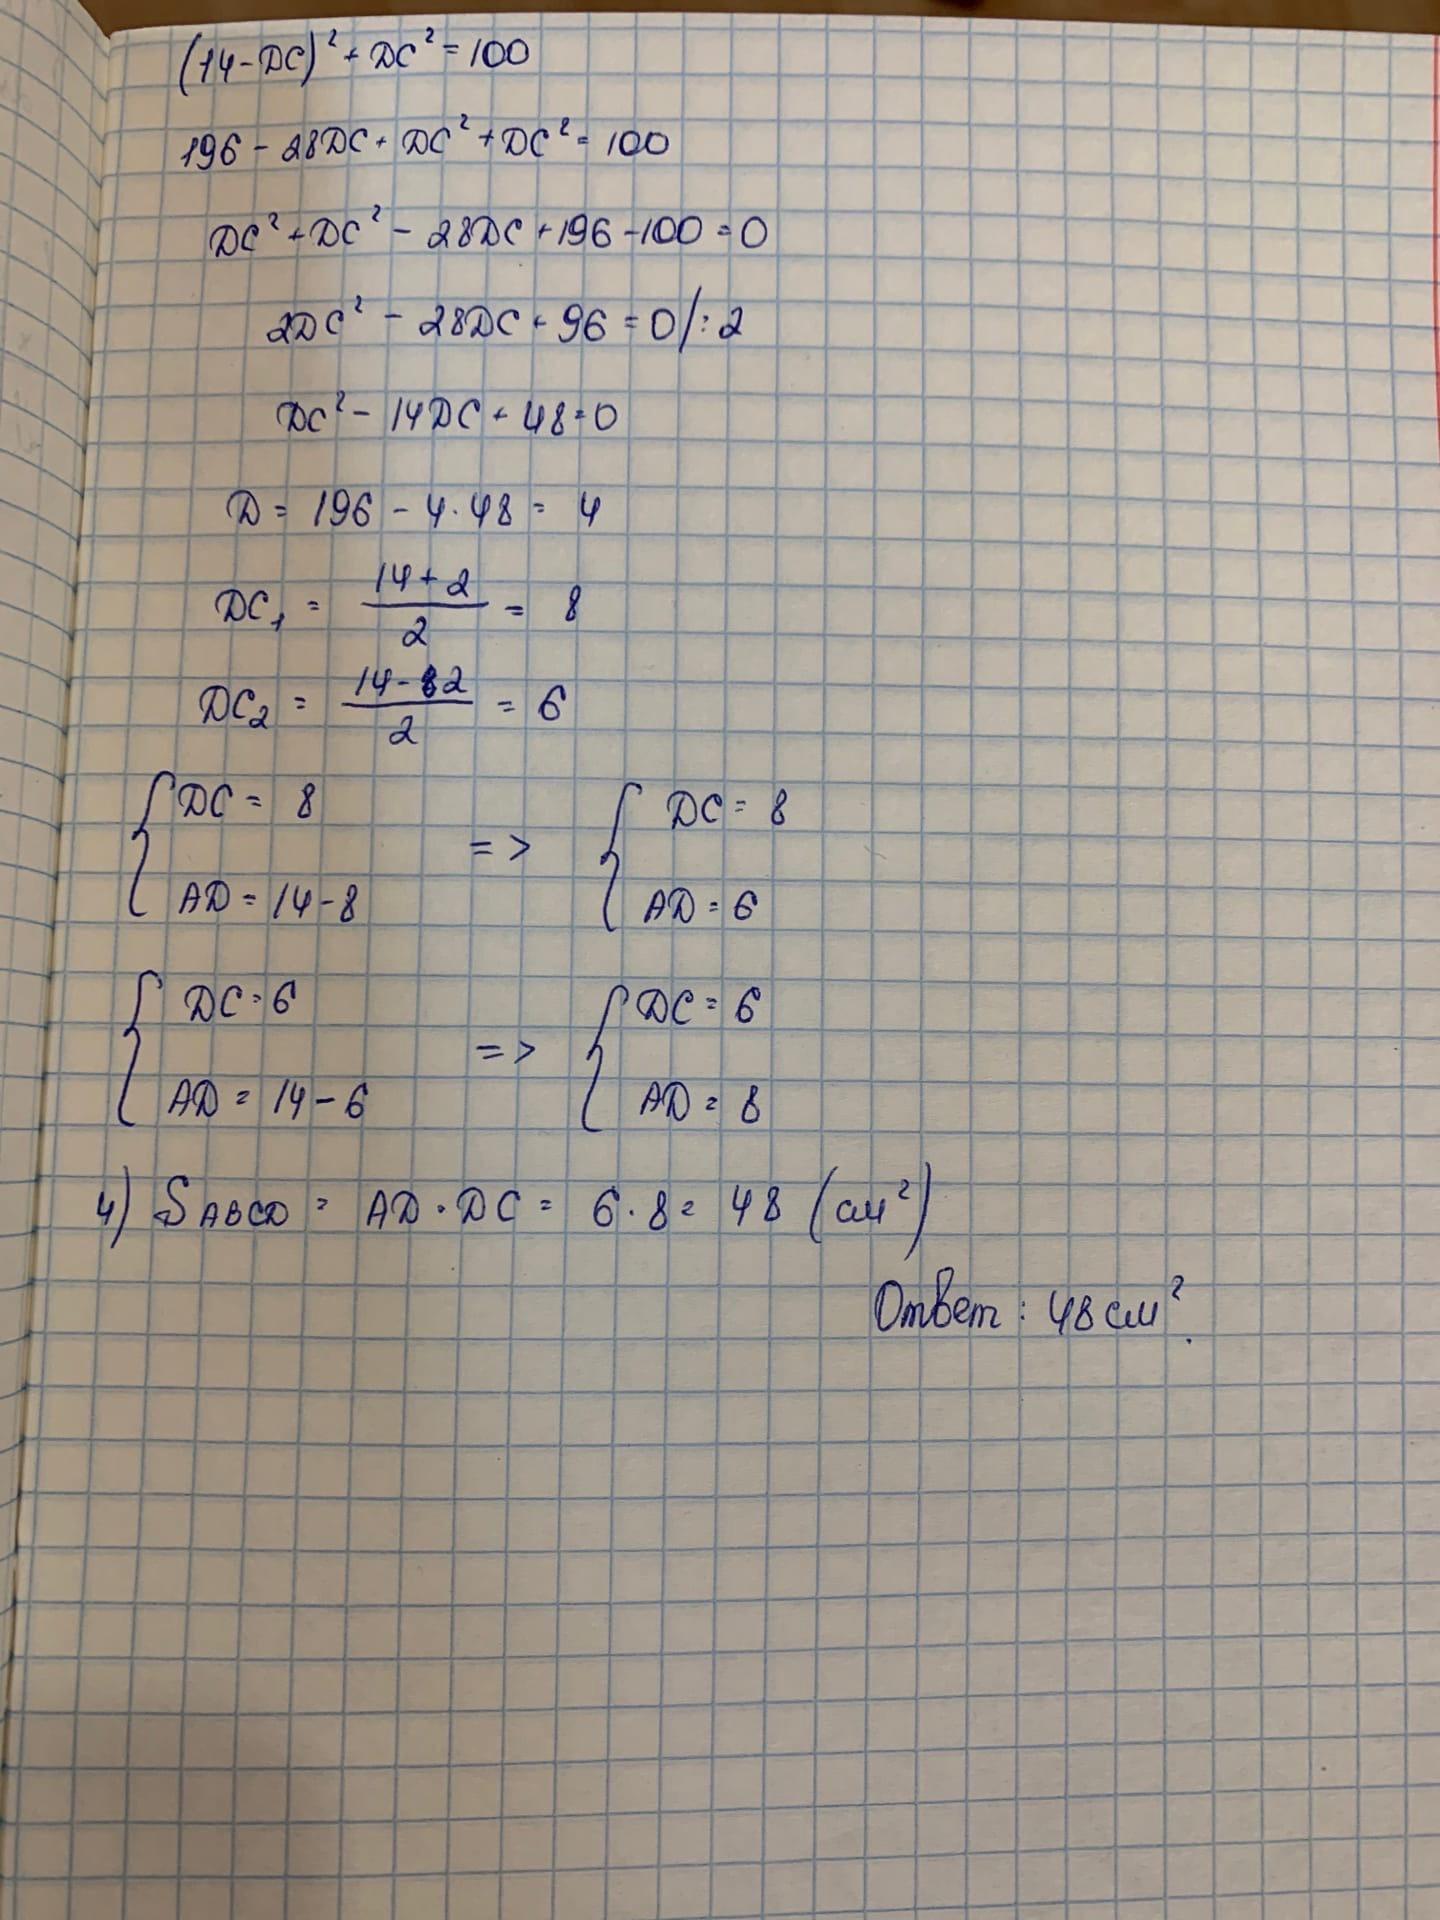 (14-DC)² + DC² = 100
196 - 28DC + DC² + DC² = 100
DC² + DC² - 28DC + 196 - 100 = 0
2DC² - 28DC + 96 = 0 /:2
DC² - 14DC + 48 = 0
D = 196 - 4·48 = 4
DC₁ = (14+2)/2 = 8
DC₂ = (14-2)/2 = 6
{ DC = 8 => { DC = 8
AD = 14-8 AD = 6
{ DC = 6 => { DC = 6
AD = 14-6 AD = 8
4) SABCD = AD · DC = 6·8 = 48 (см²)
Ответ: 48 см².